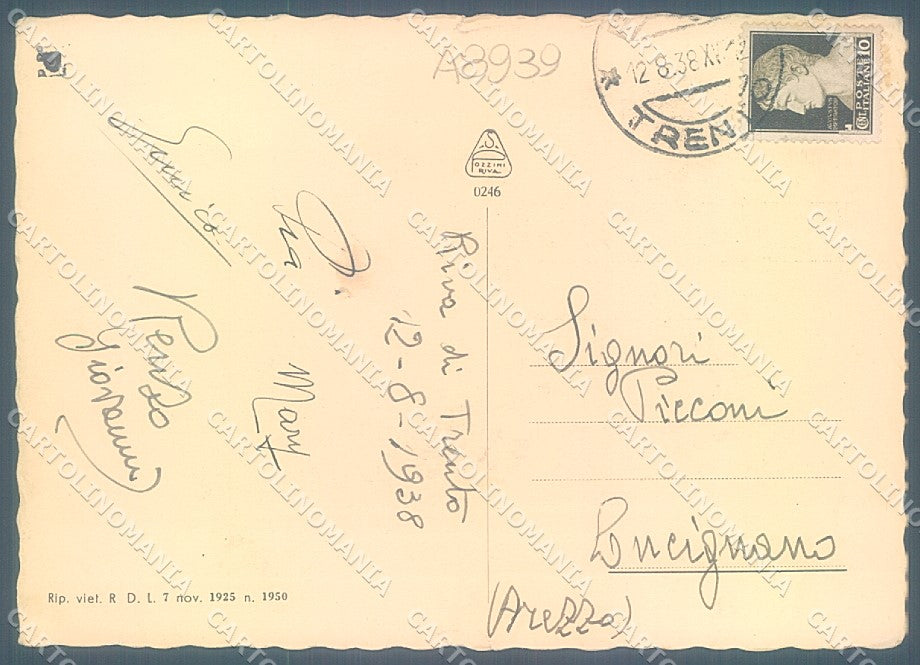 A8939
12.8.38 XVI
TREN
POSTE
ITALIANE
10
S.
POZZINI
RIVA
0246
Riva di Trento
12-8-1938
Pia
Mary
Renzo
Giovanni
Signori
Picconi
Lucignano
(Arezzo)
Rip. viet. R. D. L. 7 nov. 1925 n. 1950
CARTOLINOMANIA